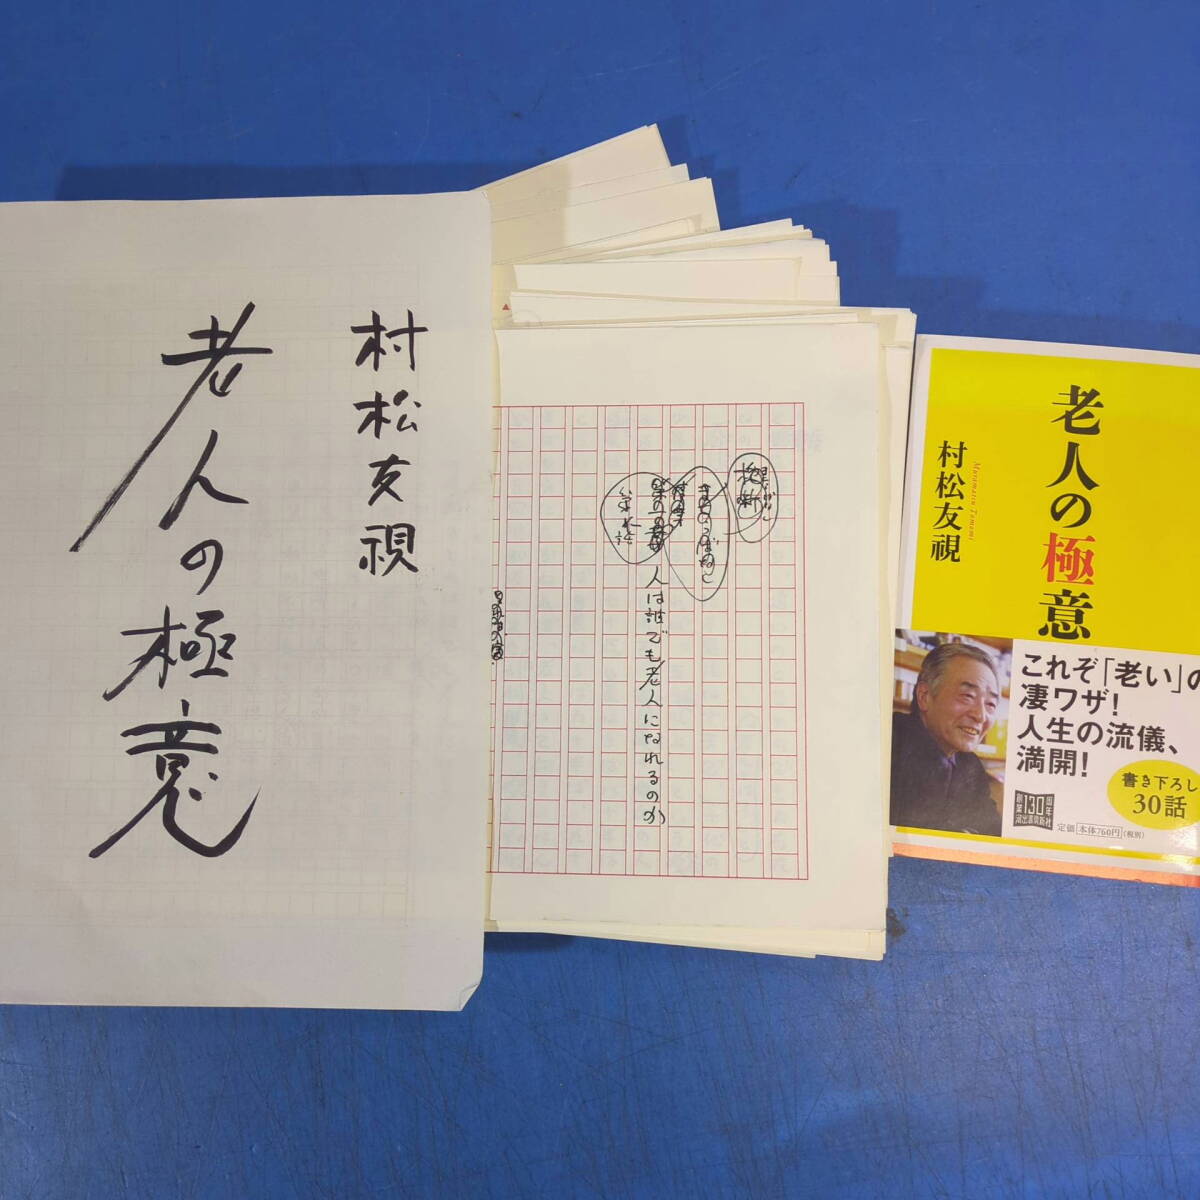 村松友視
老人の極意
人は誰でも老人になれるのか
老人の極意
村松友視
Muramatsu Tomomi
これぞ「老い」の
凄ワザ!
人生の流儀、
満開!
書き下ろし
30話
創業
130
周年
河出書房新社
定価 本体760円(税別)